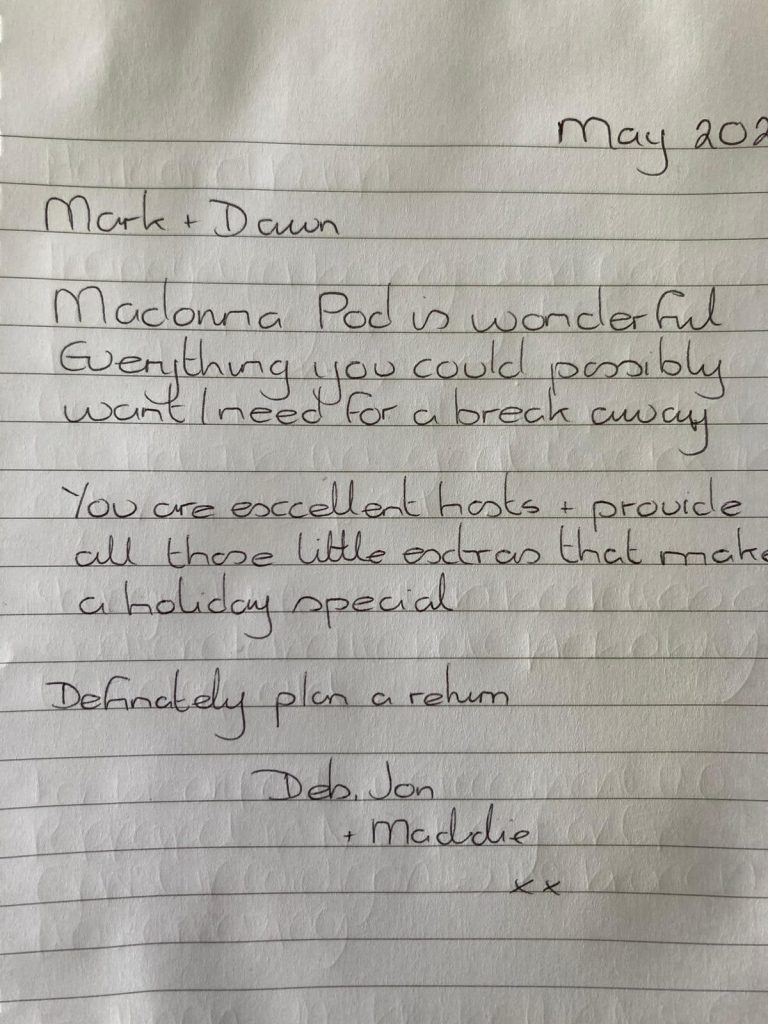 May 202
Mark + Dawn
Madonna Pod is wonderful
Everything you could possibly
want / need for a break away
You are excellent hosts + provide
all those little extras that make
a holiday special
Definately plan a return
Deb, Jon
+ Maddie
xx